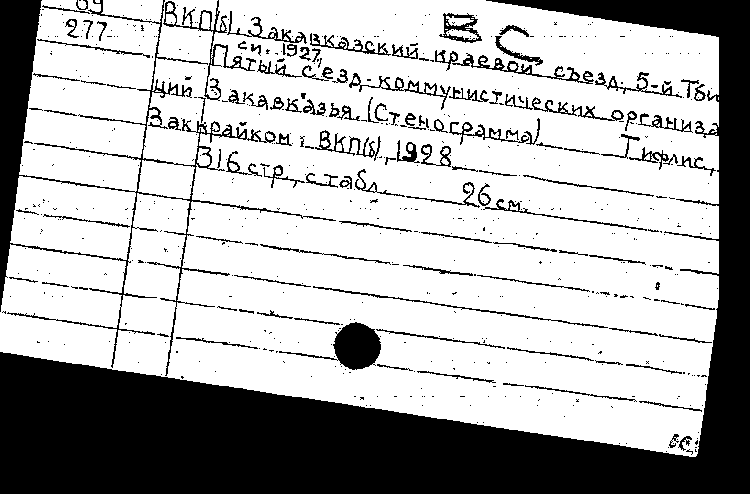 ВС
09
277
ВКП(б). Закавказский краевой съезд, 5-й.
си. 1927.
Пятый с'езд коммунистических организа
ций Закавказья. (Стенограмма). Тифлис,
Заккрайком ВКП(б), 1928
316 стр., с табл. 26 см.